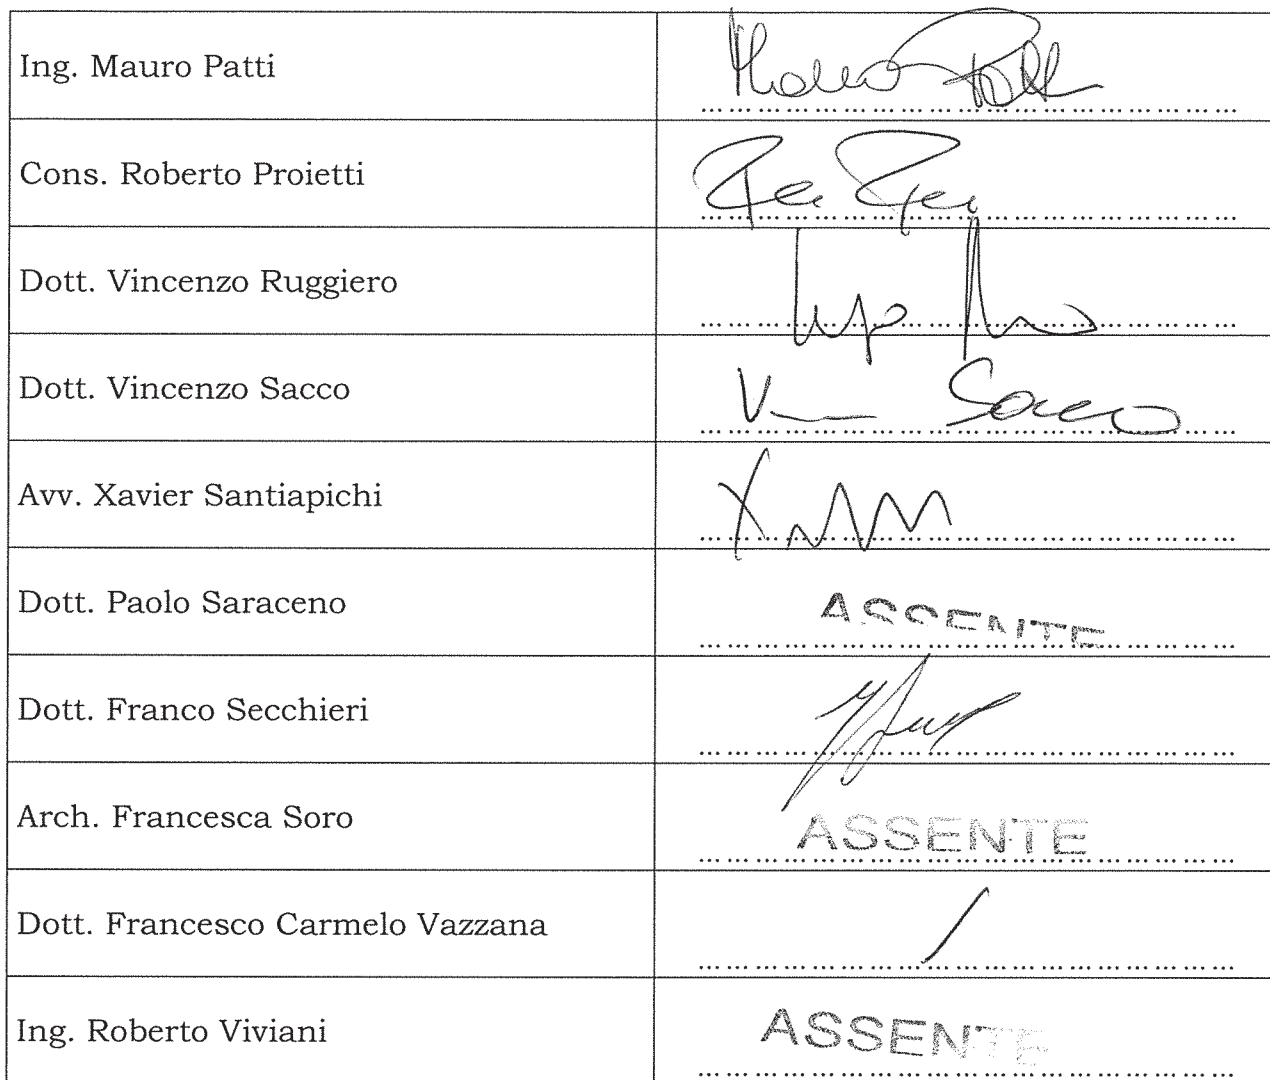 Ing. Mauro Patti
Mauro Patti
Cons. Roberto Proietti
Dott. Vincenzo Ruggiero
Dott. Vincenzo Sacco
V Sacco
Avv. Xavier Santiapichi
Dott. Paolo Saraceno
ASSENTE
Dott. Franco Secchieri
Arch. Francesca Soro
ASSENTE
Dott. Francesco Carmelo Vazzana
Ing. Roberto Viviani
ASSENTE